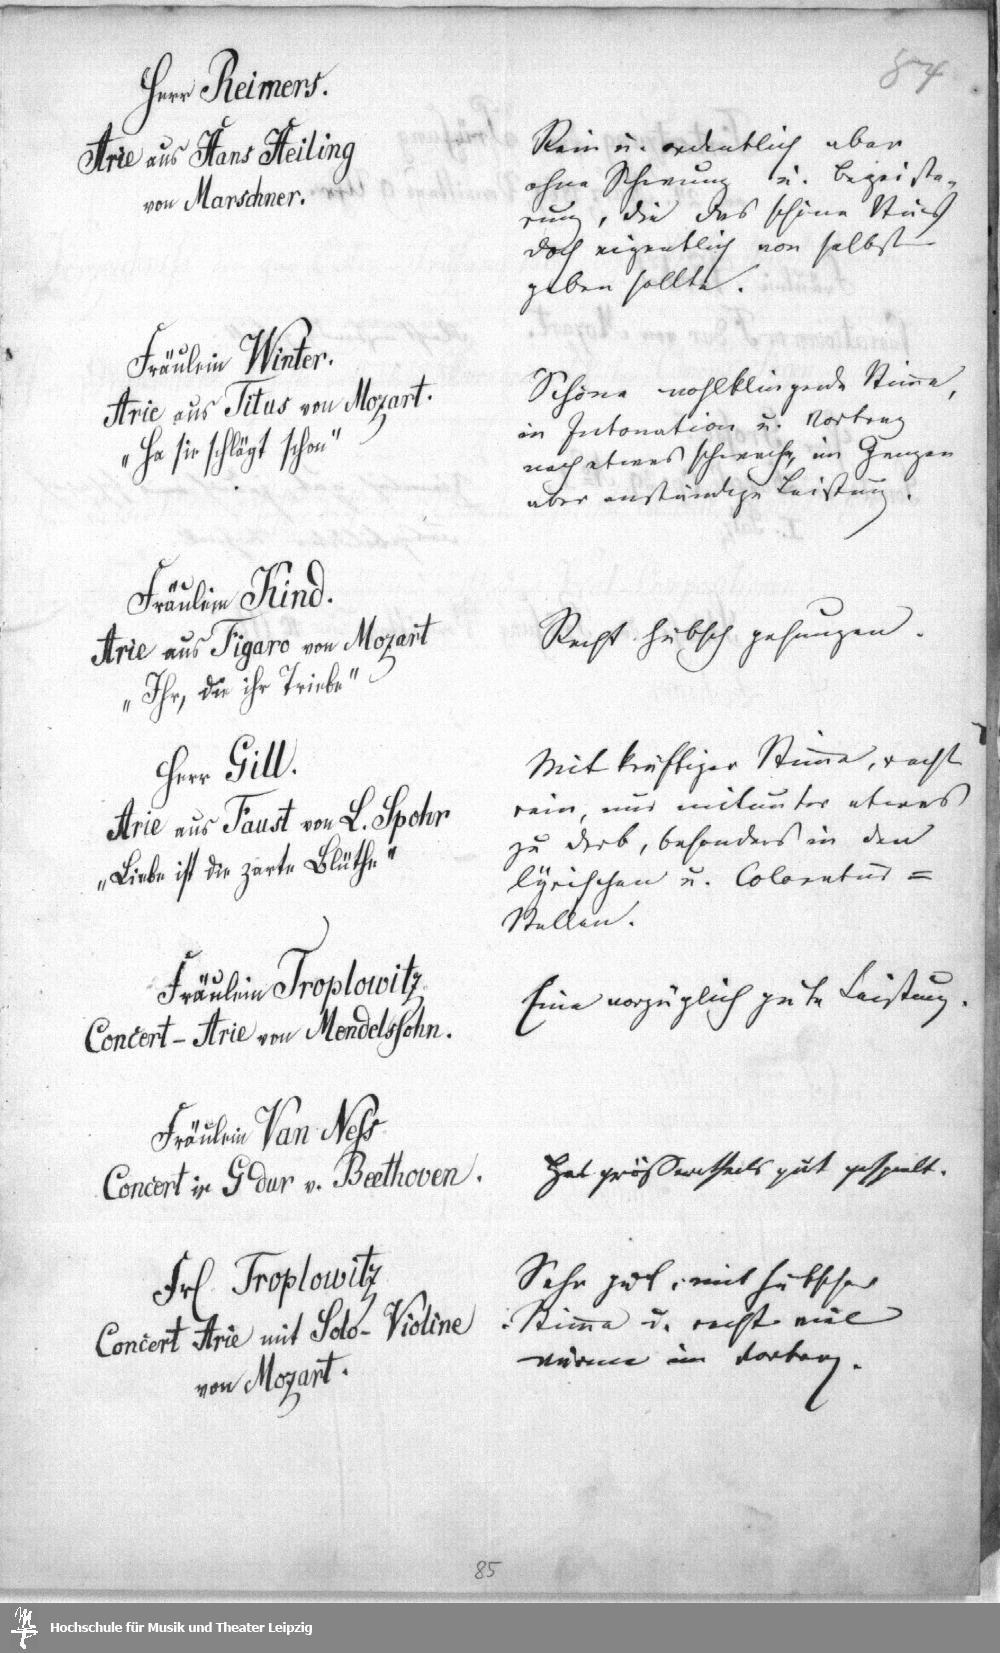 84
Herr Reimers.
Arie aus Hans Heiling
von Marschner.
Rein u. ordentlich aber
ohne Schwung u. Begeiste-
rung, die das schöne Stück
doch eigentlich von selbst
geben sollte.
Fräulein Winter.
Arie aus Titus von Mozart.
"Ha sie schlägt schon"
Schöne wohlklingende Stimme,
in Intonation u. Vortrag
noch etwas schwach, im Ganzen
aber anständige Leistung.
Fräulein Kind.
Arie aus Figaro von Mozart
"Ihr, die ihr Triebe"
Recht hübsch gesungen.
Herr Gill.
Arie aus Faust von L. Spohr
"Liebe ist die zarte Blüthe"
Mit kräftiger Stimme, recht
rein, nur mitunter etwas
zu derb, besonders in den
lÿrischen u. Coloratur=
Stellen.
Fräulein Troplowitz
Concert-Arie von Mendelssohn.
Eine vorzüglich gute Leistung.
Fräulein Van Ness
Concert in G dur v. Beethoven.
Hat grössentheils gut gespielt.
Frl. Troplowitz
Concert Arie mit Solo-Violine
von Mozart.
Sehr gut, mit hübscher
Stimme u. recht viel
Wärme im Vortrag.
85
Hochschule für Musik und Theater Leipzig